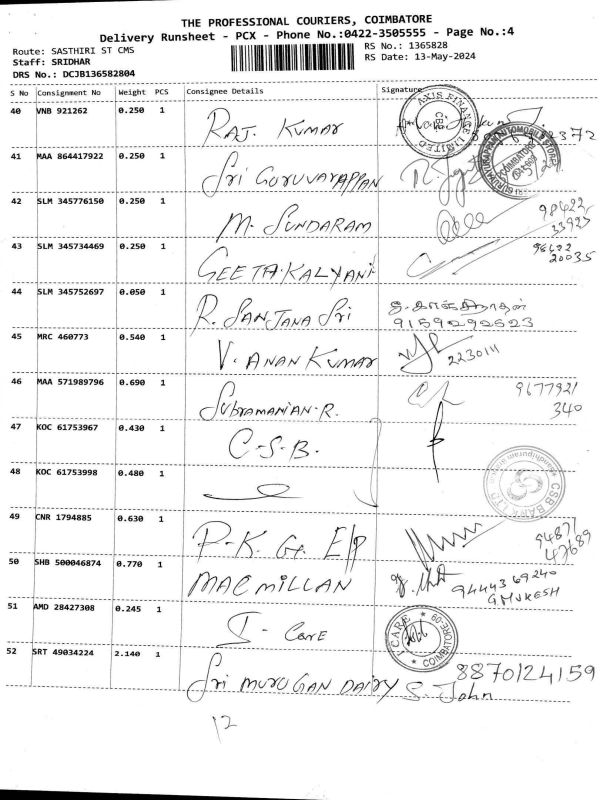 THE PROFESSIONAL COURIERS, COIMBATORE
Delivery Runsheet - PCX - Phone No.:0422-3505555 - Page No.:4
Route: SASTHIRI ST CMS
RS No.: 1365828
Staff: SRIDHAR
RS Date: 13-May-2024
DRS No.: DCJB136582804
S No Consignment No Weight PCS Consignee Details Signature
40 VNB 921262 0.250 1 RAJ. KUMAR
AXIS FINANCE LIMITED CBE
41 MAA 864417922 0.250 1 Sri GURUVAYAPPAN
42 SLM 345776150 0.250 1 M. SUNDARAM 98422
33927
43 SLM 345734469 0.250 1 GEETA.KALYANI
20035
44 SLM 345752697 0.050 1 R. SANJANA Sri
9159292523
45 MRC 460773 0.540 1 V. ANAN KUMAR 2230114
46 MAA 571989796 0.690 1 SUBRAMANIAN.R. 9677921
340
47 KOC 61753967 0.430 1 C.S.B.
48 KOC 61753998 0.480 1
CSB BANK LTD
49 CNR 1794885 0.630 1 P.K.G. E/P 94871
47689
50 SHB 500046874 0.770 1 MACMILLAN 94443 69240
G.MUKESH
51 AMD 28427308 0.245 1 I - CARE
I CARE COIMBATORE-09
52 SRT 49034224 2.140 1 Sri MURUGAN DAIRY 8870124159
S. John
12